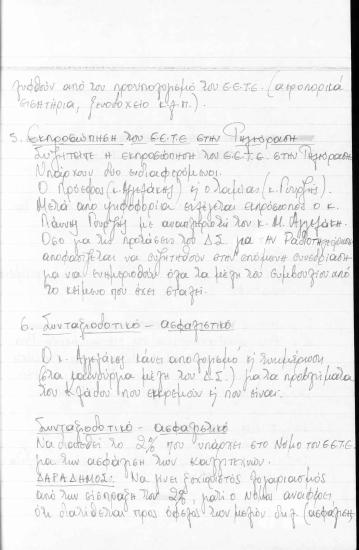 λυφθούν από τον προϋπολογισμό του Ε.Ε.Τ.Ε. (αεροπορικά
εισητήρια, ξενοδοχείο κ.λ.π.).
5. Εκπροσώπηση του Ε.Ε.Τ.Ε στην
Συζητείτε η εκπροσώπηση του Ε.Ε.Τ.Ε. στην
Υπάρχουν δύο ενδιαφερόμενοι.
Ο Πρόεδρος (κ. Αγγελάκης) ή ο ταμίας (κ. Γουρζής).
Μετά από ψηφοφορία εκλέγεται εκπρόσωπος ο κ.
Γιάννης Γουρζής με αναπληρωτή τον κ. Μ. Αγγελάκη.
Όσο για τις προτάσεις του Δ.Σ. για την Ραδιοτηλεόραση
αποφασίζεται να συζητηθούν στην επόμενη συνεδρίαση
για να ενημερωθούν όλα τα μέλη του Συμβουλίου από
το κείμενο που έχει σταλεί.
6. Συνταξιοδοτικό - ασφαλιστικό
Ο κ. Αγγελάκης κάνει απολογισμό ή ενημέρωση
(στα καινούργια μέλη του Δ.Σ.) για τα προβλήματα
του Κλάδου που εκκρεμούν ή που είναι.
Συνταξιοδοτικό - ασφαλιστικό
Να διατεθεί το 2% που υπάρχει στο Νόμο του Ε.Ε.Τ.Ε.
για την ασφάλιση των καλλιτεχνών.
ΔΑΡΑΔΗΜΟΣ: Να γίνει ξεχωριστός λογαριασμός
από την είσπραξη του 2%, γιατί ο Νόμος αναφέρει
ότι διατίθεται προς όφελος των μελών δηλ. (ασφάλιση